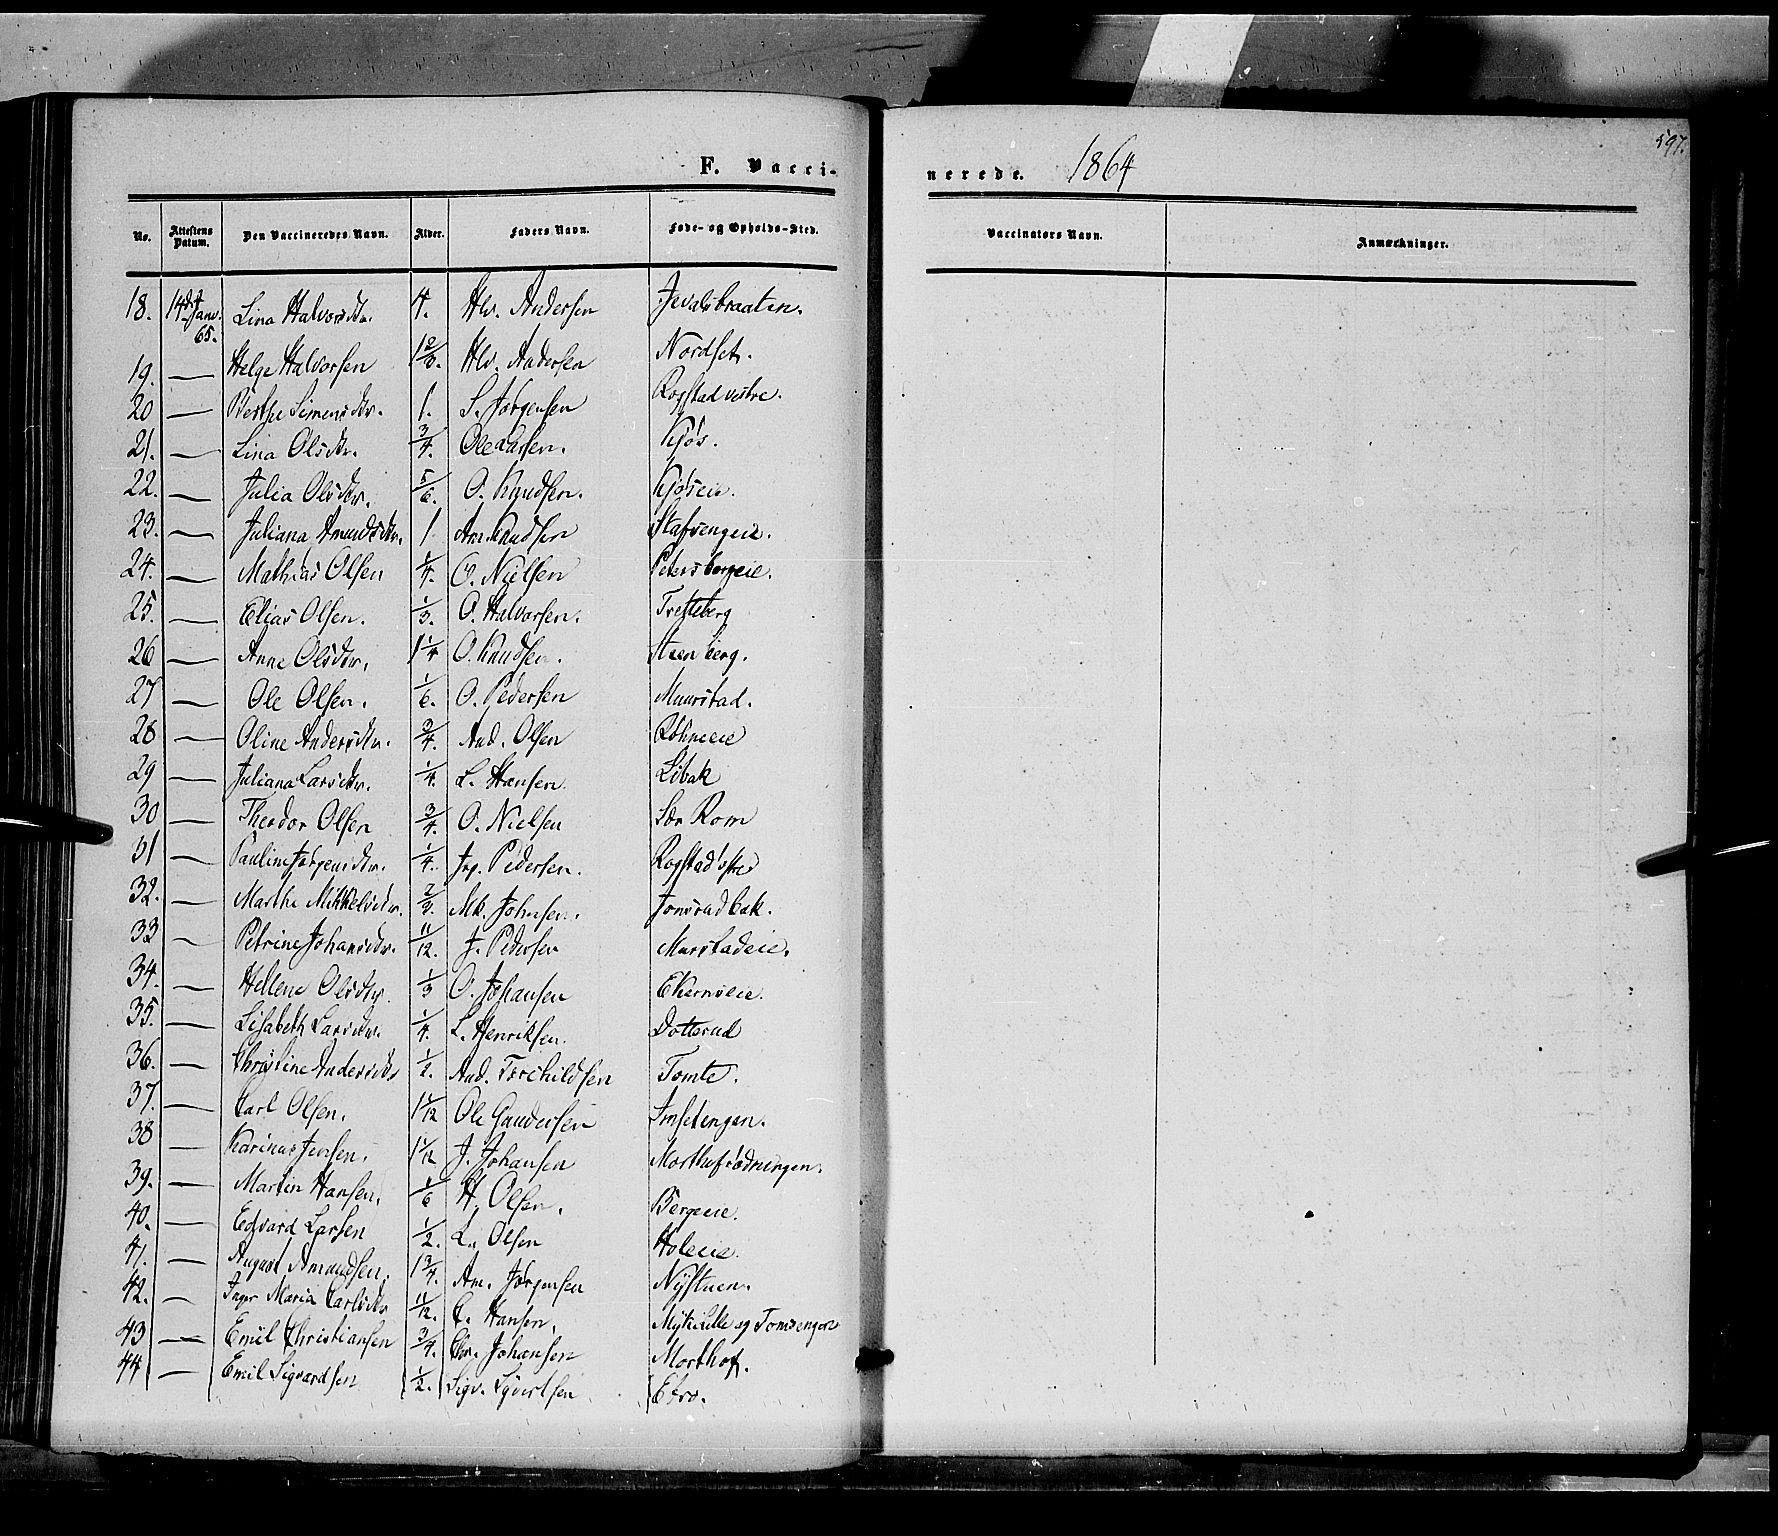 597.
F. Vacci- nerede. 1864
No. Attestens Datum. Den Vaccineredes Navn. Alder. Faders Navn. Føde- og Opholds-Sted. Vaccinators Navn. Anmærkninger.
18. 14de Janv. 65. Lina Halvorsdtr. 4. Hlv. Andersen
19. — Helge Halvorsen Hlv. Andersen Nordset.
20 — Berthe Simensdtr. 1. S. Jørgensen Rogstad vestre.
21. — Lina Olsdtr. 3/4. Ole Larsen. Kjøs.
22. — Julia Olsdtr. 5/6. O. Knudsen. Kjøseie.
23. — Juliana Amundsdtr. 1 Am. Knudsen Stafsengeie.
24. — Mathias Olsen 1/4. O. Nielsen Petersborgeie.
25. — Elias Olsen. 1/3. O. Halvorsen. Tretteberg
26 — Anne Olsdtr. 1 1/4 O. Knudsen. Steenberg.
27 — Ole Olsen. 1/6. O. Pedersen Muurstad.
28 — Oline Andersdtr. 3/4. And. Olsen Röhneeie
29 — Juliana Larsdtr. 1/4. L. Hansen. Libak
30 — Theodor Olsen 3/4. O. Nielsen Sør Rom
31 — Pauline Jørgensdtr. 1/4. Jrg. Pedersen. Rogstad østre
32. — Marthe Mikkelsdtr. 2/3. Mk. Johnsen. Jonsrudbak.
33 — Petrine Johansdtr. 11/12. J. Pedersen Murstadeie.
34. — Hellene Olsdtr. 1/3 O. Johansen Ekerneie.
35. — Lisabeth Larsdtr. 1/4. L. Henriksen. Dotterud
36. — Christine Andersdtr 1/2. And. Torchildsen Tomte.
37. — Carl Olsen. 1 1/12 Ole Gundersen Imsetengen.
38 — Karinus Jensen. 1 1/12 J. Johansen
39. — Martin Hansen. 1/6 H. Olsen. Bergeeie.
40. — Edvard Larsen 1/2. L. Olsen Holeeie.
41. — August Amundsen. 1 3/4. Am. Jørgensen Nÿstuen.
42. — Inger Maria Carlsdtr 11/12. C. Hansen. Mykilille og Tomsengen
43 — Emil Christiansen 3/4. Chr. Johansen Morthof.
44 — Emil Sigvardsen 1/2. Sigv. Syvertsen